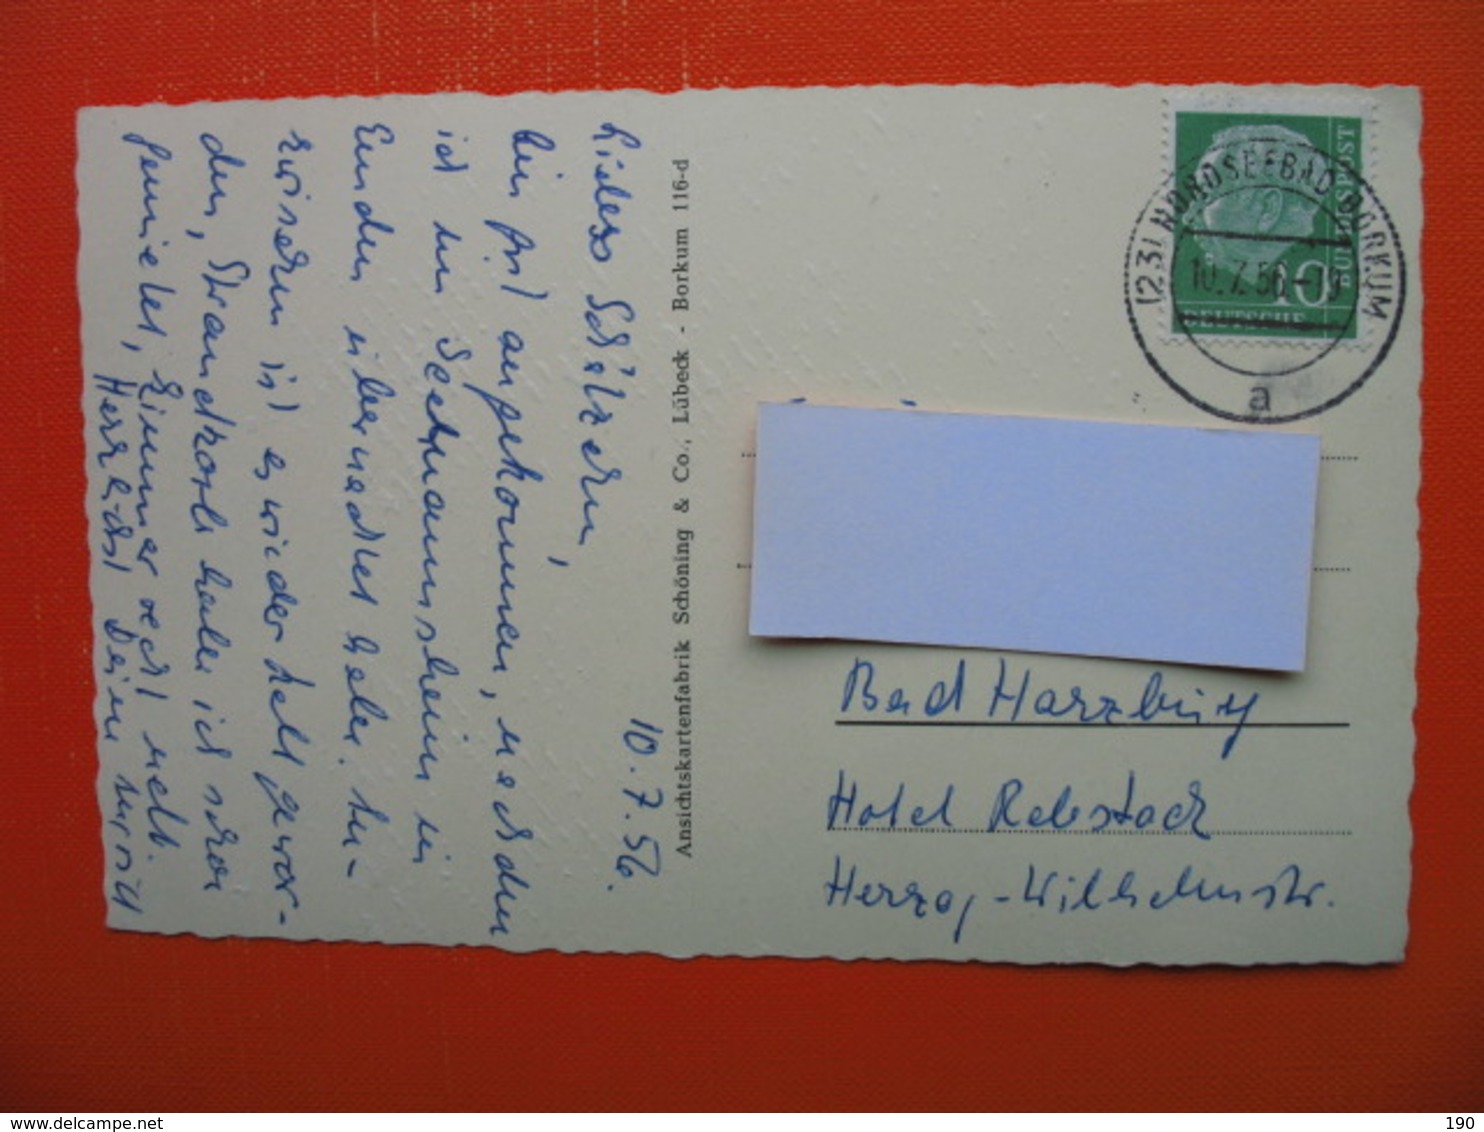 10.7.56.
Liebes Schätzchen,
bin gut angekommen, nachdem
ich im Seemannsheim in
Emden übernachtet habe. In-
zwischen ist es wieder kalt gewor-
den, Strandkorb habe ich schon
gemietet, Zimmer recht nett.
Herzlichst Dein
Ansichtskartenfabrik Schöning & Co., Lübeck - Borkum 116-d
(23) NORDSEEBAD BORKUM
10.7.56.-19
a
10
DEUTSCHE
BUNDESPOST
Bad Harzburg
Hotel Rebstock
Herzog-Wilhelmstr.
delcampe.net
190